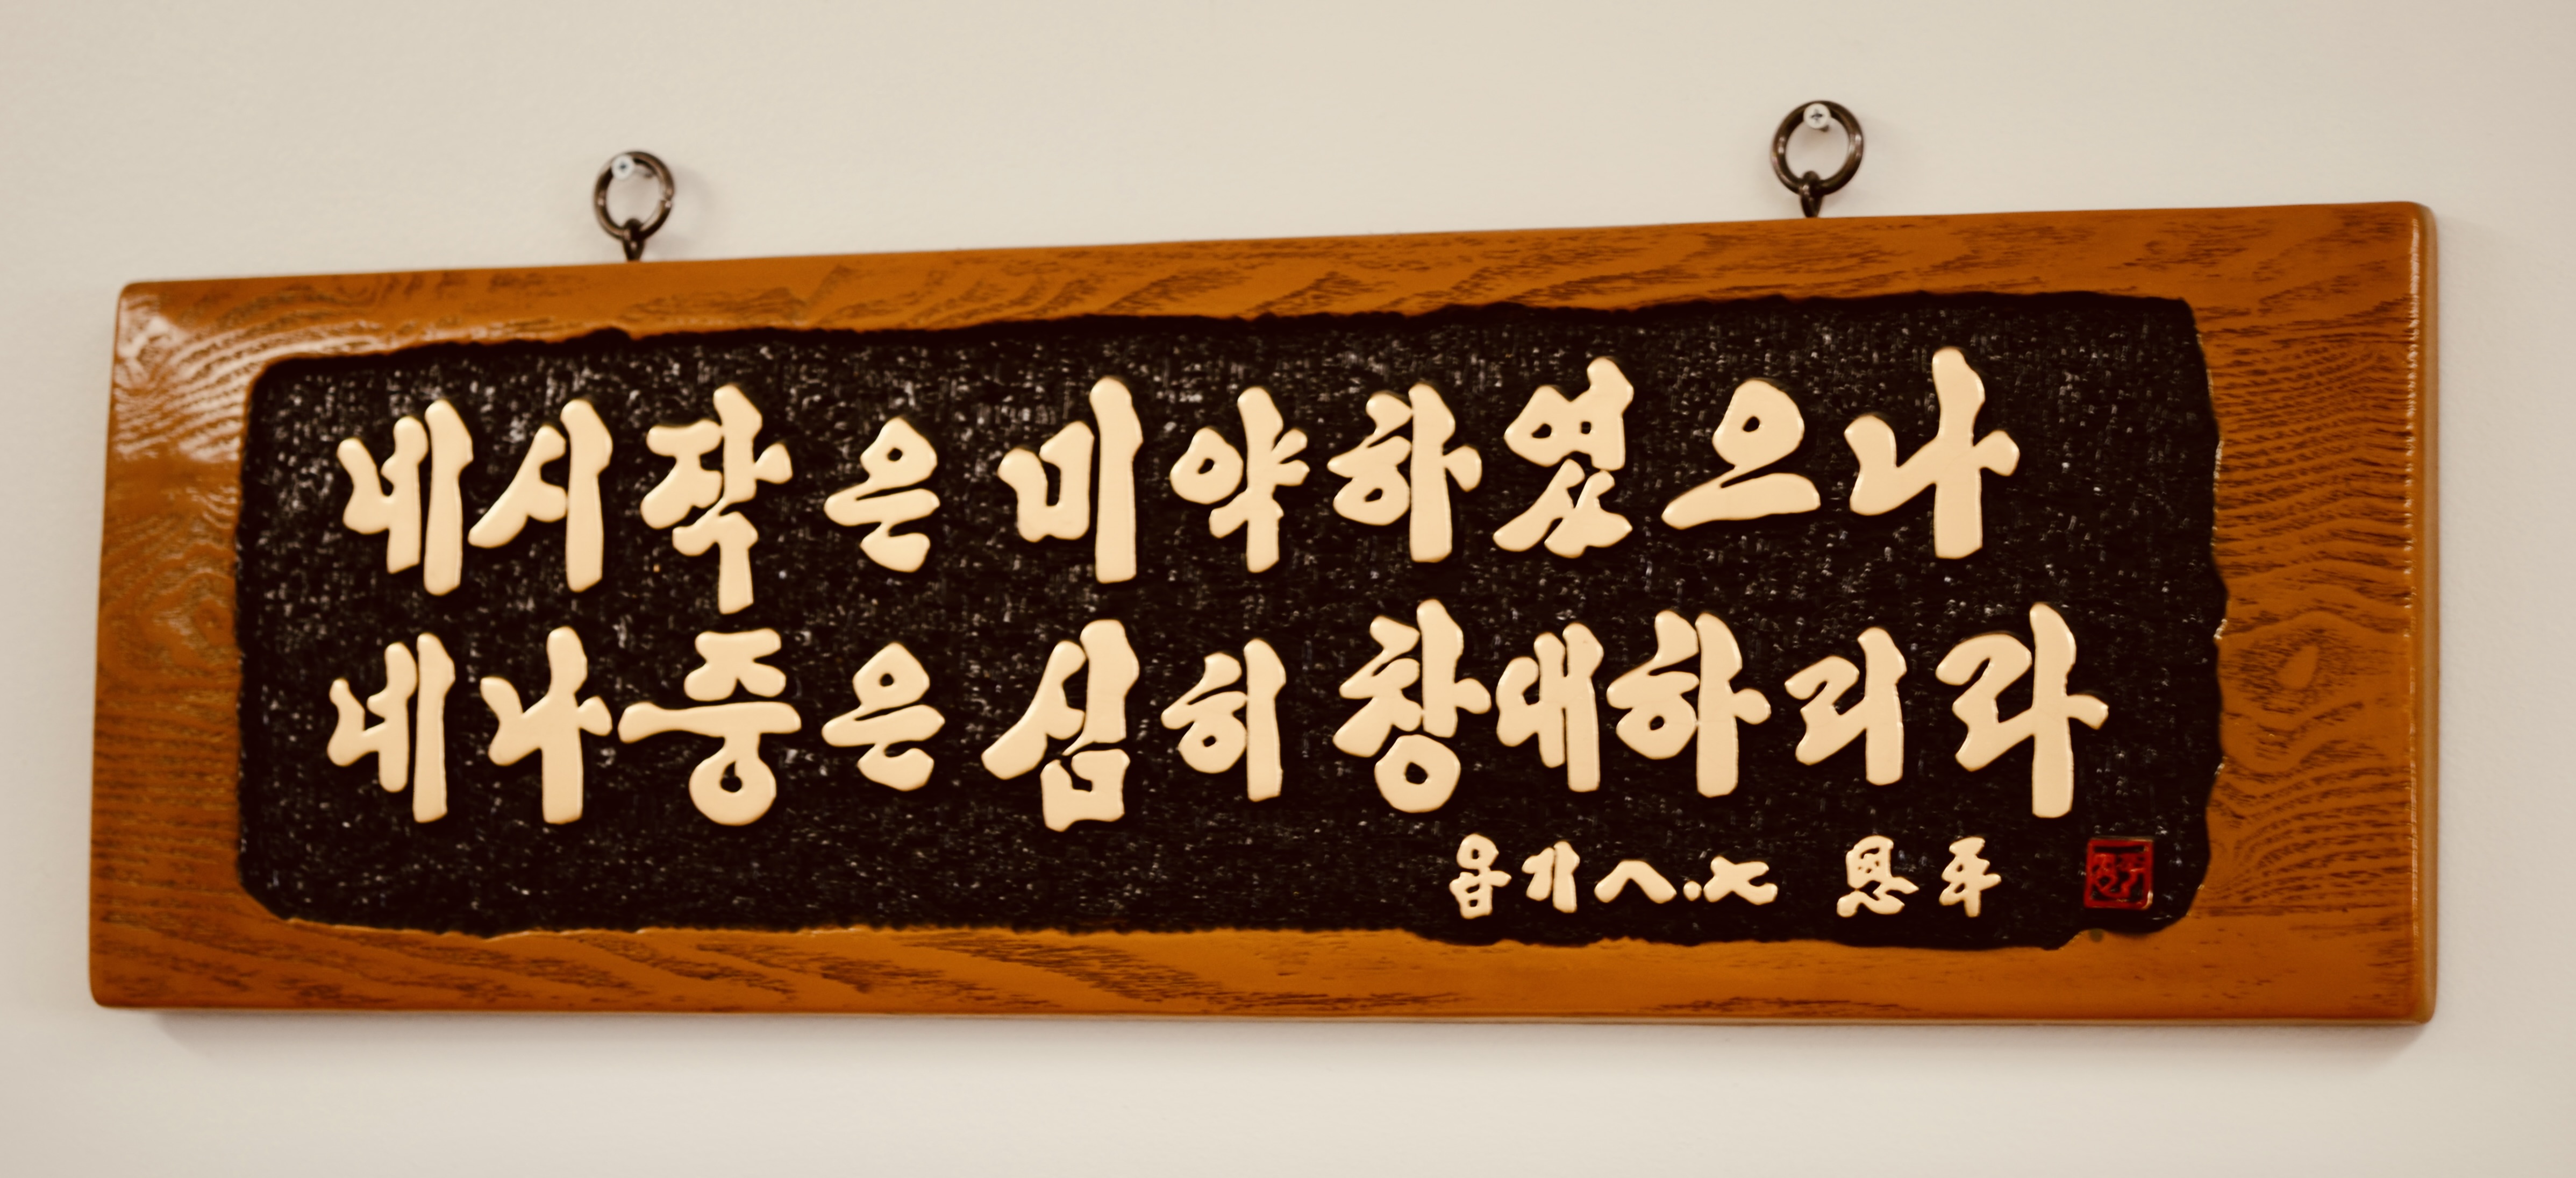 네 시작은 미약하였으나
네 나중은 심히 창대하리라
욥기 八.七 恩平